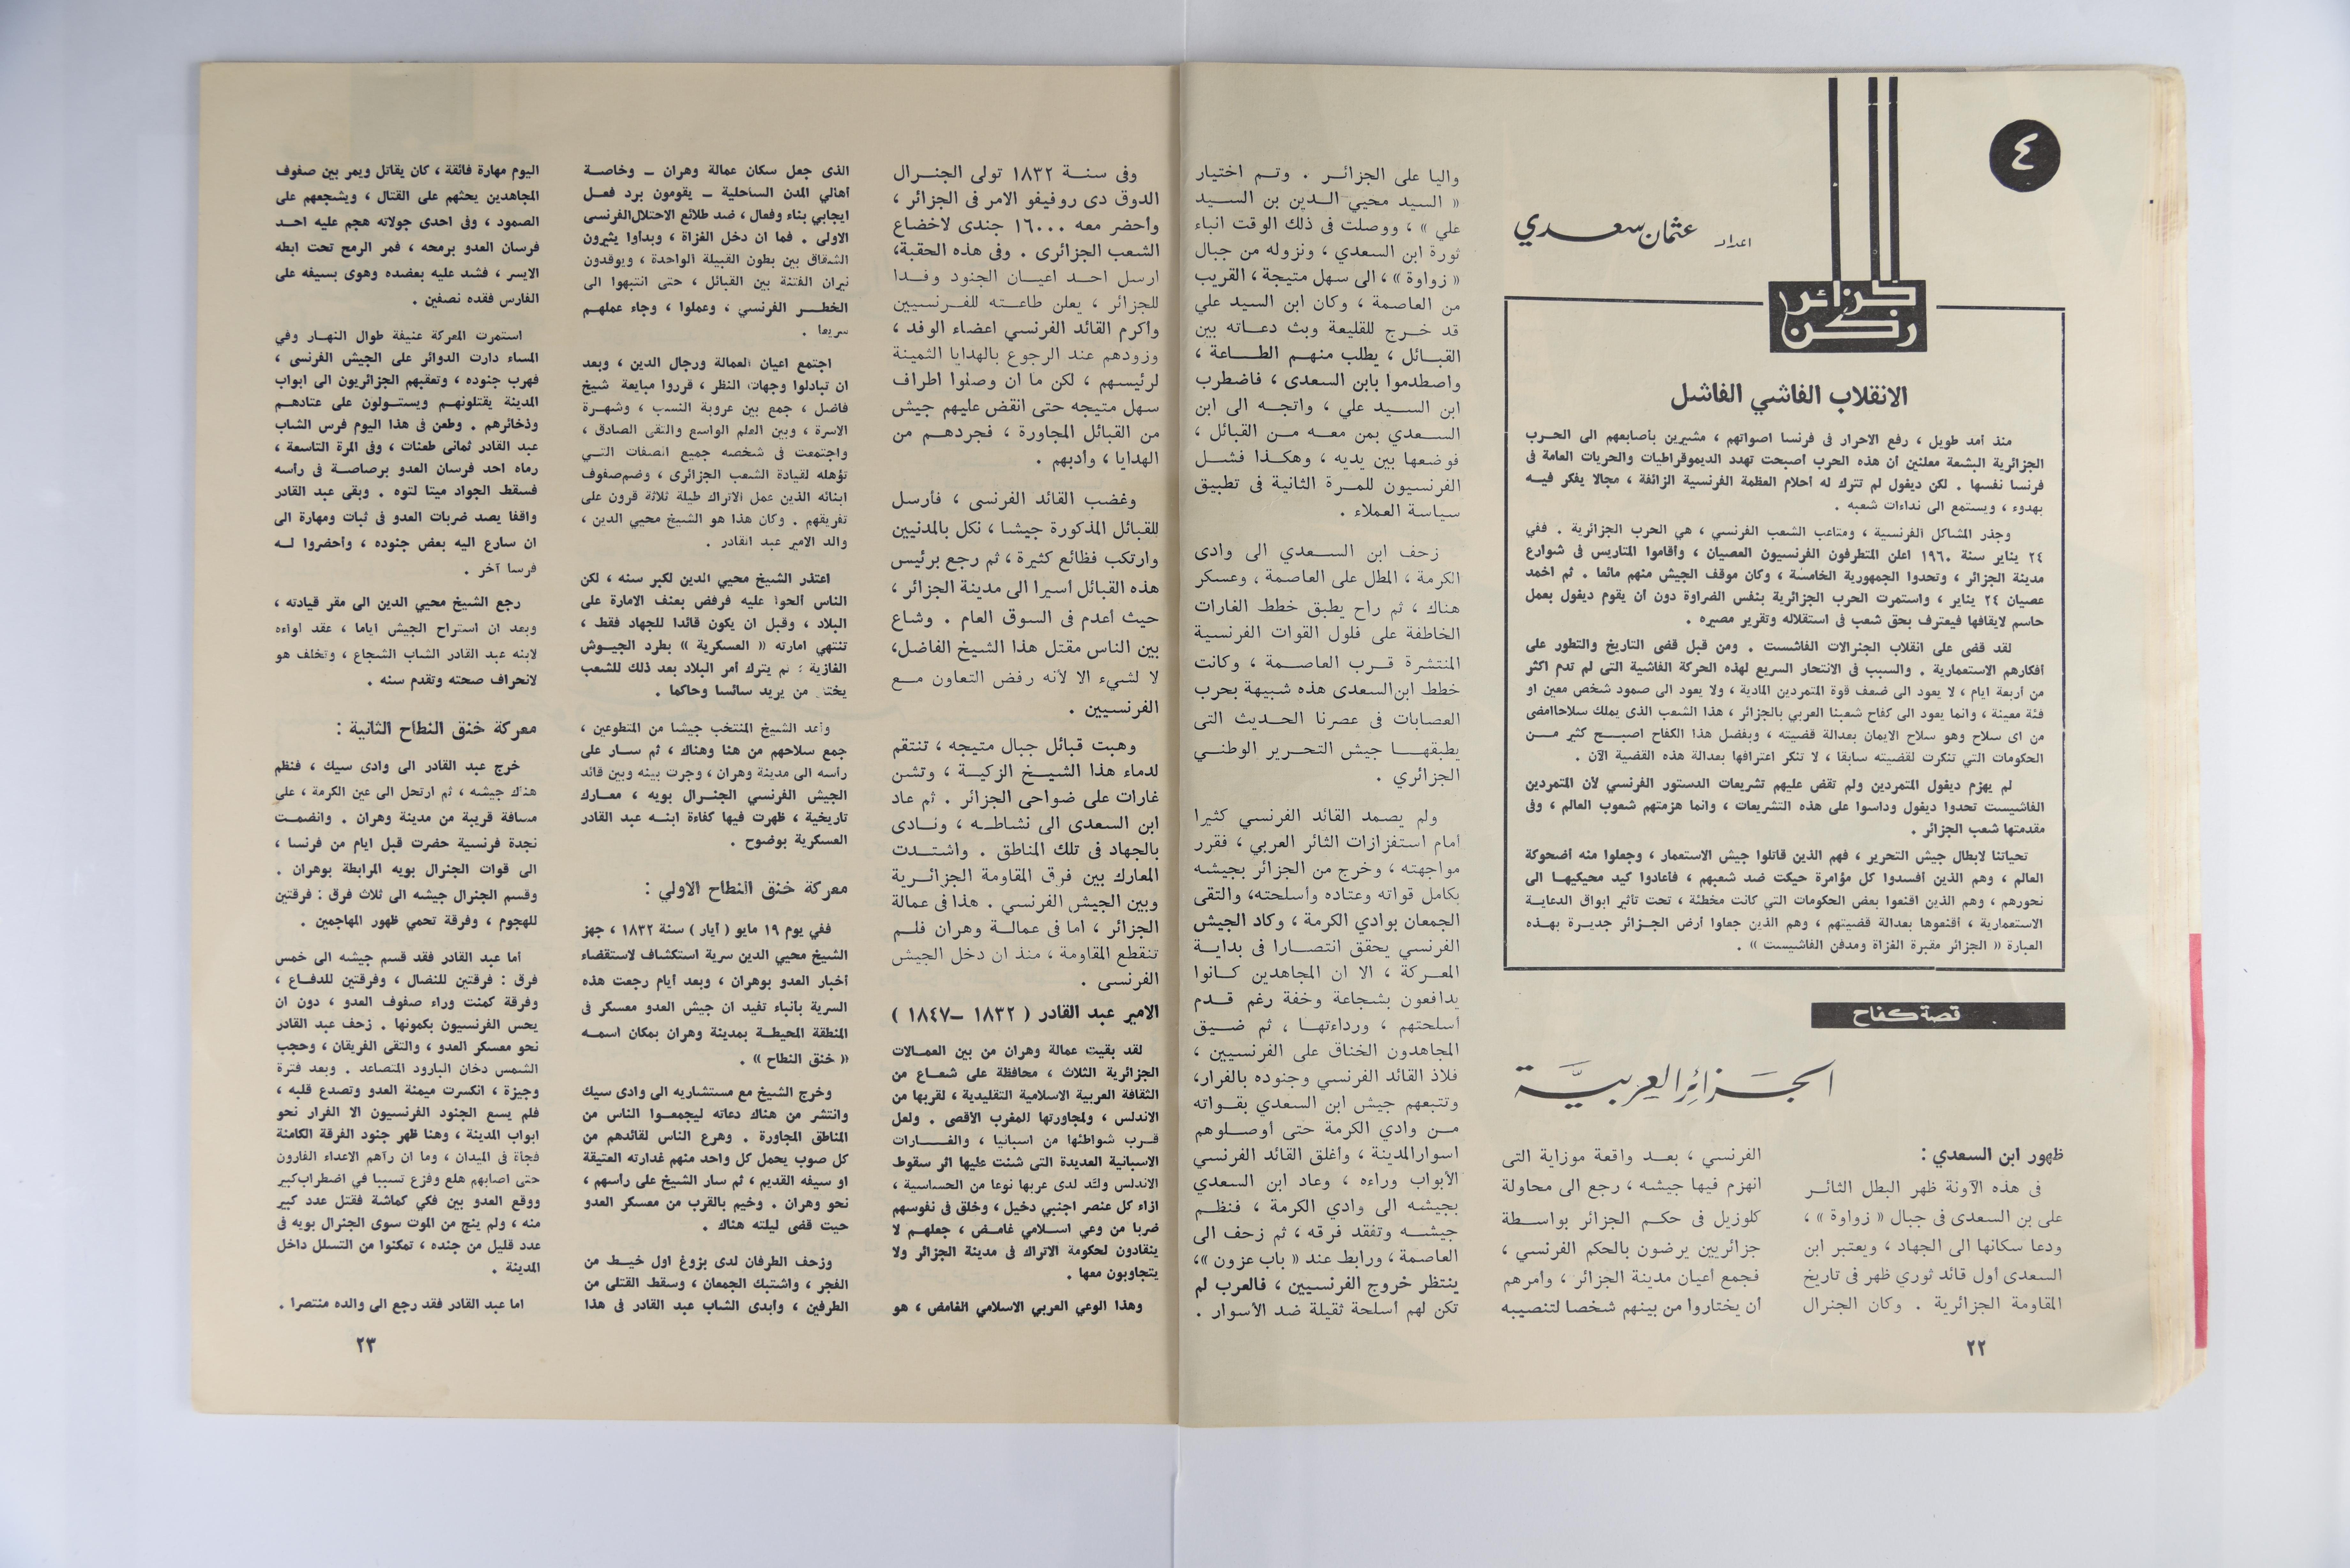 ٤
اعداد عثمان سعدي
ركن الجزائر
الانقلاب الفاشي الفاشل
منذ أمد طويل ، رفع الاحرار فى فرنسا اصواتهم ، مشيرين بأصابعهم الى الحرب
الجزائرية البشعة معلنين أن هذه الحرب أصبحت تهدد الديموقراطيات والحريات العامة فى
فرنسا نفسها . لكن ديغول لم تترك له أحلام العظمة الفرنسية الزائفة ، مجالا يفكر فيــه
بهدوء ، ويستمع الى نداءات شعبه .
وجذر المشاكل الفرنسية ، ومتاعب الشعب الفرنسي ، هي الحرب الجزائرية . ففي
٢٤ يناير سنة ١٩٦٠ اعلن المتطرفون الفرنسيون العصيان ، وأقاموا المتاريس فى شوارع
مدينة الجزائر ، وتحدوا الجمهورية الخامسة ، وكان موقف الجيش منهم مائعا . ثم اخمد
عصيان ٢٤ يناير ، واستمرت الحرب الجزائرية بنفس الضراوة دون أن يقوم ديغول بعمل
حاسم لايقافها فيعترف بحق شعب فى استقلاله وتقرير مصيره .
لقد قضى على انقلاب الجنرالات الفاشست . ومن قبل قضى التاريخ والتطور على
أفكارهم الاستعمارية . والسبب فى الانتحار السريع لهذه الحركة الفاشية التى لم تدم اكثر
من أربعة ايام ، لا يعود الى ضعف قوة المتمردين المادية ، ولا يعود الى صمود شخص معين او
فئة معينة ، وانما يعود الى كفاح شعبنا العربي بالجزائر ، هذا الشعب الذى يملك سلاحاامضى
من اى سلاح وهو سلاح الايمان بعدالة قضيته ، وبفضل هذا الكفاح اصبــح كثير مــن
الحكومات التي تنكرت لقضيته سابقا ، لا تنكر اعترافها بعدالة هذه القضية الآن .
لم يهزم ديغول المتمردين ولم تقض عليهم تشريعات الدستور الفرنسي لأن المتمردين
الفاشيست تحدوا ديغول وداسوا على هذه التشريعات ، وانما هزمتهم شعوب العالم ، وفى
مقدمتها شعب الجزائر .
تحياتنا لابطال جيش التحرير ، فهم الذين قاتلوا جيش الاستعمار ، وجعلوا منه أضحوكة
العالم ، وهم الذين أفسدوا كل مؤامرة حيكت ضد شعبهم ، فأعادوا كيد محيكيهــا الى
نحورهم ، وهم الذين اقنعوا بعض الحكومات التي كانت مخطئة ، تحت تأثير ابواق الدعايــة
الاستعمارية ، أقنعوها بعدالة قضيتهم ، وهم الذين جعلوا أرض الجــزائر جديــرة بهــذه
العبارة « الجزائر مقبرة الغزاة ومدفن الفاشيست » .
قصة كفاح
الجزائر العربية
ظهور ابن السعدي :
فى هذه الآونة ظهر البطل الثائــر
على بن السعدى فى جبال « زواوة » ،
ودعا سكانها الى الجهاد ، ويعتبر ابن
السعدى أول قائد ثوري ظهر فى تاريخ
المقاومة الجزائرية . وكان الجنرال
الفرنسي ، بعــد واقعة موزاية التى
انهزم فيها جيشه ، رجع الى محاولة
كلوزيل فى حكم الجزائر بواســطة
جزائريين يرضون بالحكم الفرنسي ،
فجمع أعيان مدينة الجزائر ، وأمرهم
أن يختاروا من بينهم شخصا لتنصيبه
واليا على الجزائــر . وتــم اختيار
« السيد محيي الــدين بن الســيد
علي » ، ووصلت فى ذلك الوقت انباء
ثورة ابن السعدي ، ونزوله من جبال
« زواوة » ، الى سهل متيجة ، القريب
من العاصمة ، وكان ابن السيد علي
قد خــرج للقليعة وبث دعــاته بين
القبــائل ، يطلب منهــم الطــاعة ،
واصطدموا بابن السعدى ، فاضطرب
ابن الســيد علي ، واتجــه الى ابن
الســعدي بمن معــه مــن القبائل ،
فوضعها بين يديه ، وهكــذا فشــل
الفرنسيون للمــرة الثانية فى تطبيق
سياسة العملاء .
زحف ابن الســعدي الى وادى
الكرمة ، المطل على العاصمة ، وعسكر
هناك ، ثم راح يطبق خطط الغارات
الخاطفة على فلول القوات الفرنسية
المنتشرة قــرب العاصــمة ، وكانت
خطط ابن السعدى هذه شبيهة بحرب
العصابات فى عصرنا الحــديث التى
يطبقهــا جيش التحــرير الوطنــي
الجزائري .
ولم يصمد القائد الفرنسي كثيرا
أمام استفزازات الثائر العربي ، فقرر
مواجهته ، وخرج من الجزائر بجيشه
بكامل قواته وعتاده وأسلحته، والتقى
الجمعان بوادي الكرمة ، وكاد الجيش
الفرنسي يحقق انتصــارا فى بدايــة
المعــركة ، الا ان المجاهدين كــانوا
يدافعون بشجاعة وخفة رغم قــدم
أسلحتهم ، ورداءتهــا ، ثم ضــيق
المجاهدون الخناق على الفرنسيين ،
فلاذ القائد الفرنسي وجنوده بالفرار،
وتتبعهم جيش ابن السعدي بقــواته
مــن وادي الكرمة حتى أوصــلوهم
اسوارالمدينة ، وأغلق القائد الفرنسي
الأبواب وراءه ، وعاد ابن السعدي
بجيشه الى وادي الكرمة ، فنظــم
جيشــه وتفقد فرقه ، ثم زحف الى
العاصمة ، ورابط عند « باب عزون »،
ينتظر خروج الفرنسيين ، فالعرب لم
تكن لهم أسلحة ثقيلة ضد الأسوار .
٢٢
وفى سنــة ١٨٣٢ تولى الجنــرال
الدوق دى روفيفو الامر فى الجزائر ،
وأحضر معه ١٦٠٠٠ جندى لاخضاع
الشعب الجزائرى . وفى هذه الحقبة،
ارسل احــد اعيــان الجنود وفــدا
للجزائر ، يعلن طاعــته للفــرنسيين
واكرم القائد الفرنسي اعضاء الوفد ،
وزودهم عند الرجوع بالهدايا الثمينة
لرئيسهم ، لكن ما ان وصلوا اطراف
سهل متيجه حتى انقض عليهم جيش
من القبائل المجاورة ، فجردهــم من
الهدايا ، وأدبهم .
وغضب القائد الفرنسى ، فأرسل
للقبائل المذكورة جيشا ، نكل بالمدنيين
وارتكب فظائع كثيرة ، ثم رجع برئيس
هذه القبائل أسيرا الى مدينة الجزائر ،
حيث أعدم فى السوق العام . وشاع
بين الناس مقتل هذا الشيخ الفاضل،
لا لشيء الا لأنه رفض التعاون مــع
الفرنسيين .
وهبت قبائل جبال متيجه ، تنتقم
لدماء هذا الشيــخ الزكيــة ، وتشن
غارات على ضواحى الجزائر . ثم عاد
ابن السعدى الى نشاطــه ، ونــادى
بالجهاد فى تلك المناطق . واشتــدت
المعارك بين فرق المقاومة الجزائــرية
وبين الجيش الفرنسي . هذا فى عمالة
الجزائر ، اما فى عمالــة وهران فلــم
تنقطع المقاومة ، منذ ان دخل الجيش
الفرنسى .
الامير عبد القادر ( ١٨٣٢ – ١٨٤٧ )
لقد بقيت عمالة وهران من بين العمــالات
الجزائرية الثلاث ، محافظة على شعــاع من
الثقافة العربية الاسلامية التقليدية ، لقربها من
الاندلس ، ولمجاورتها المغرب الأقصى . ولعل
قــرب شواطئها من اسبانيا ، والغــارات
الاسبانية العديدة التى شنت عليها اثر سقوط
الاندلس ولَّد لدى عربها نوعا من الحساسية ،
ازاء كل عنصر اجنبي دخيل ، وخلق فى نفوسهم
ضربا من وعي اسلامي غامــض ، جعلهــم لا
ينقادون لحكومة الاتراك فى مدينة الجزائر ولا
يتجاوبون معها .
وهذا الوعي العربي الاسلامي الغامض ، هو
الذى جعل سكان عمالة وهران – وخاصــة
أهالي المدن الساحلية – يقومون برد فعــل
ايجابي بناء وفعال ، ضد طلائع الاحتلال الفرنسى
الاولى . فما ان دخل الغزاة ، وبدأوا يثيرون
الشقاق بين بطون القبيلة الواحدة ، ويوقدون
نيران الفتنة بين القبائل ، حتى انتبهوا الى
الخطــر الفرنسي ، وعملوا ، وجاء عملهــم
سريعا .
اجتمع اعيان العمالة ورجال الدين ، وبعد
ان تبادلوا وجهات النظر ، قرروا مبايعة شيخ
فاضل ، جمع بين عروبة النسب ، وشهــرة
الاسرة ، وبين العلم الواسع والتقى الصادق ،
واجتمعت فى شخصه جميع الصفات التــي
تؤهله لقيادة الشعب الجزائرى ، وضم صفوف
ابنائه الذين عمل الاتراك طيلة ثلاثة قرون على
تفريقهم . وكان هذا هو الشيخ محيي الدين ،
والد الامير عبد القادر .
اعتذر الشيخ محيي الدين لكبر سنه ، لكن
الناس ألحوا عليه فرفض بعنف الامارة على
البلاد ، وقبل ان يكون قائدا للجهاد فقط ،
تنتهي امارته « العسكرية » بطرد الجيــوش
الغازية ؛ ثم يترك أمر البلاد بعد ذلك للشعب
يختار من يريد سائسا وحاكما .
وأعد الشيخ المنتخب جيشا من المتطوعين ،
جمع سلاحهم من هنا وهناك ، ثم ســار على
رأسه الى مدينة وهران ، وجرت بينه وبين قائد
الجيش الفرنسي الجنــرال بويه ، معــارك
تاريخية ، ظهرت فيها كفاءة ابنــه عبد القادر
العسكرية بوضوح .
معركة خنق النطاح الاولي :
ففي يوم ١٩ مايو ( أيار ) سنة ١٨٣٢ ، جهز
الشيخ محيي الدين سرية استكشاف لاستقضاء
أخبار العدو بوهران ، وبعد أيام رجعت هذه
السرية بأنباء تفيد ان جيش العدو معسكر فى
المنطقة المحيطــة بمدينة وهران بمكان اسمــه
« خنق النطاح » .
وخرج الشيخ مع مستشاريه الى وادى سيك
وانتشر من هناك دعاته ليجمعــوا الناس من
المناطق المجاورة . وهرع الناس لقائدهم من
كل صوب يحمل كل واحد منهم غدارته العتيقة
او سيفه القديم ، ثم سار الشيخ على رأسهم ،
نحو وهران . وخيم بالقرب من معسكر العدو
حيث قضى ليلته هناك .
وزحف الطرفان لدى بزوغ اول خيــط من
الفجر ، واشتبك الجمعان ، وسقط القتلى من
الطرفين ، وأبدى الشاب عبد القادر فى هذا
اليوم مهارة فائقة ، كان يقاتل ويمر بين صفوف
المجاهدين يحثهم على القتال ، ويشجعهم على
الصمود ، وفى احدى جولاته هجم عليه احــد
فرسان العدو برمحه ، فمر الرمح تحت ابطه
الايسر ، فشد عليه بعضده وهوى بسيفه على
الفارس فقده نصفين .
استمرت المعركة عنيفة طوال النهــار وفي
المساء دارت الدوائر على الجيش الفرنسى ،
فهرب جنوده ، وتعقبهم الجزائريون الى ابواب
المدينة يقتلونهــم ويستــولون على عتادهــم
وذخائرهم . وطعن فى هذا اليوم فرس الشاب
عبد القادر ثمانى طعنات ، وفى المرة التاسعة ،
رماه احد فرسان العدو برصاصــة فى رأسه
فسقط الجواد ميتا لتوه . وبقى عبد القادر
واقفا يصد ضربات العدو فى ثبات ومهارة الى
ان سارع اليه بعض جنوده ، وأحضروا لــه
فرسا آخر .
رجع الشيخ محيي الدين الى مقر قيادته ،
وبعد ان استراح الجيش اياما ، عقد لواءه
لابنه عبد القادر الشاب الشجاع ، وتخلف هو
لانحراف صحته وتقدم سنه .
معركة خنق النطاح الثانية :
خرج عبد القادر الى وادى سيك ، فنظم
هناك جيشه ، ثم ارتحل الى عين الكرمة ، على
مسافة قريبة من مدينة وهران . وانضمــت
نجدة فرنسية حضرت قبل ايام من فرنسا ،
الى قوات الجنرال بويه المرابطة بوهران .
وقسم الجنرال جيشه الى ثلاث فرق : فرقتين
للهجوم ، وفرقة تحمي ظهور المهاجمين .
أما عبد القادر فقد قسم جيشه الى خمس
فرق : فرقتين للنضال ، وفرقتين للدفــاع ،
وفرقة كمنت وراء صفوف العدو ، دون ان
يحس الفرنسيون بكمونها . زحف عبد القادر
نحو معسكر العدو ، والتقى الفريقان ، وحجب
الشمس دخان البارود المتصاعد . وبعد فترة
وجيزة ، انكسرت ميمنة العدو وتصدع قلبه ،
فلم يسع الجنود الفرنسيون الا الفرار نحو
ابواب المدينة ، وهنا ظهر جنود الفرقة الكامنة
فجأة فى الميدان ، وما ان رآهم الاعداء الفارون
حتى اصابهم هلع وفزع تسببا في اضطراب كبير
ووقع العدو بين فكي كماشة فقتل عدد كبير
منه ، ولم ينج من الموت سوى الجنرال بويه فى
عدد قليل من جنده ، تمكنوا من التسلل داخل
المدينة .
اما عبد القادر فقد رجع الى والده منتصرا .
٢٣